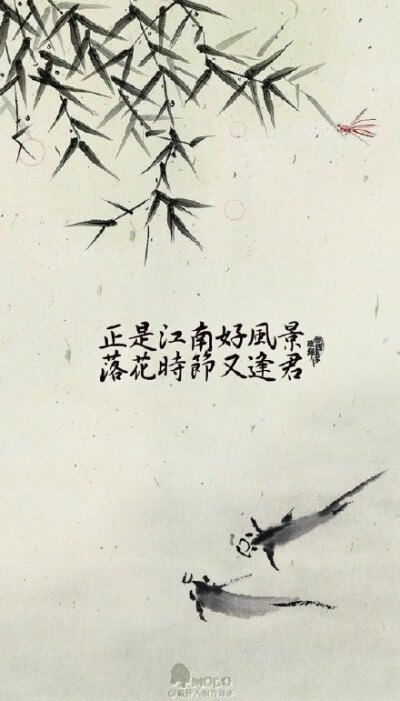 正是江南好風景
落花時節又逢君
MOLO